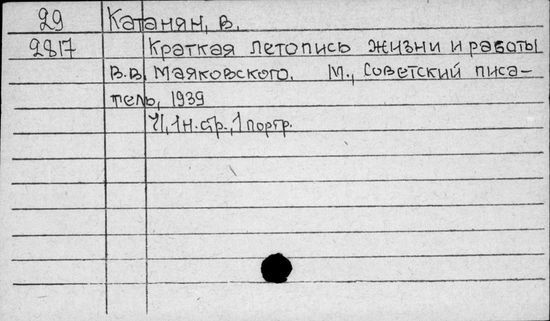 29 Катанян, В.
2817 Краткая летопись жизни и работы
В.В. Маяковского. М., Советский писа-
тель, 1939
71, 1 н. стр., 1 портр.